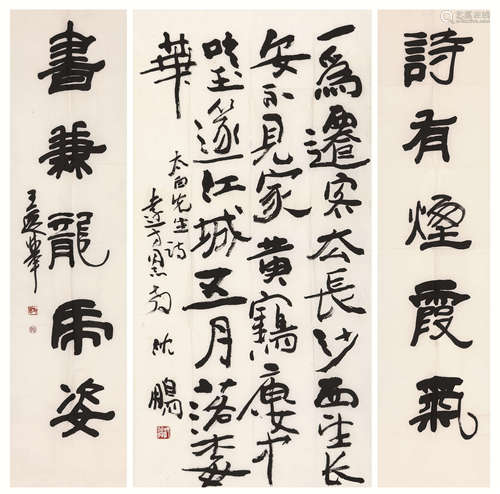 詩有煙霞氣
一爲遷客去長沙西望長
安不見家黄鶴廔中
吹玉篴江城五月落梅
華
太白先生詩
沈鵬
書兼龍虎姿
王遐舉